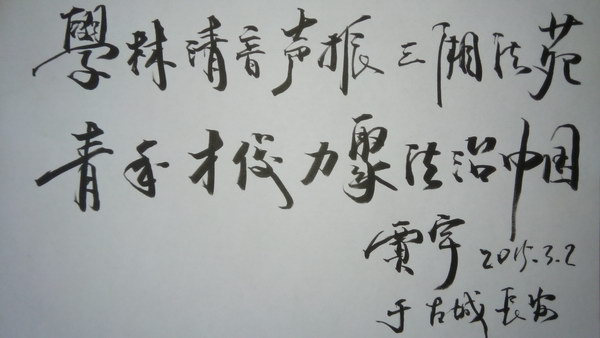 學林清音声振三湘法苑
青年才俊力聚法治中国
賈宇 2015.3.2
于古城長安